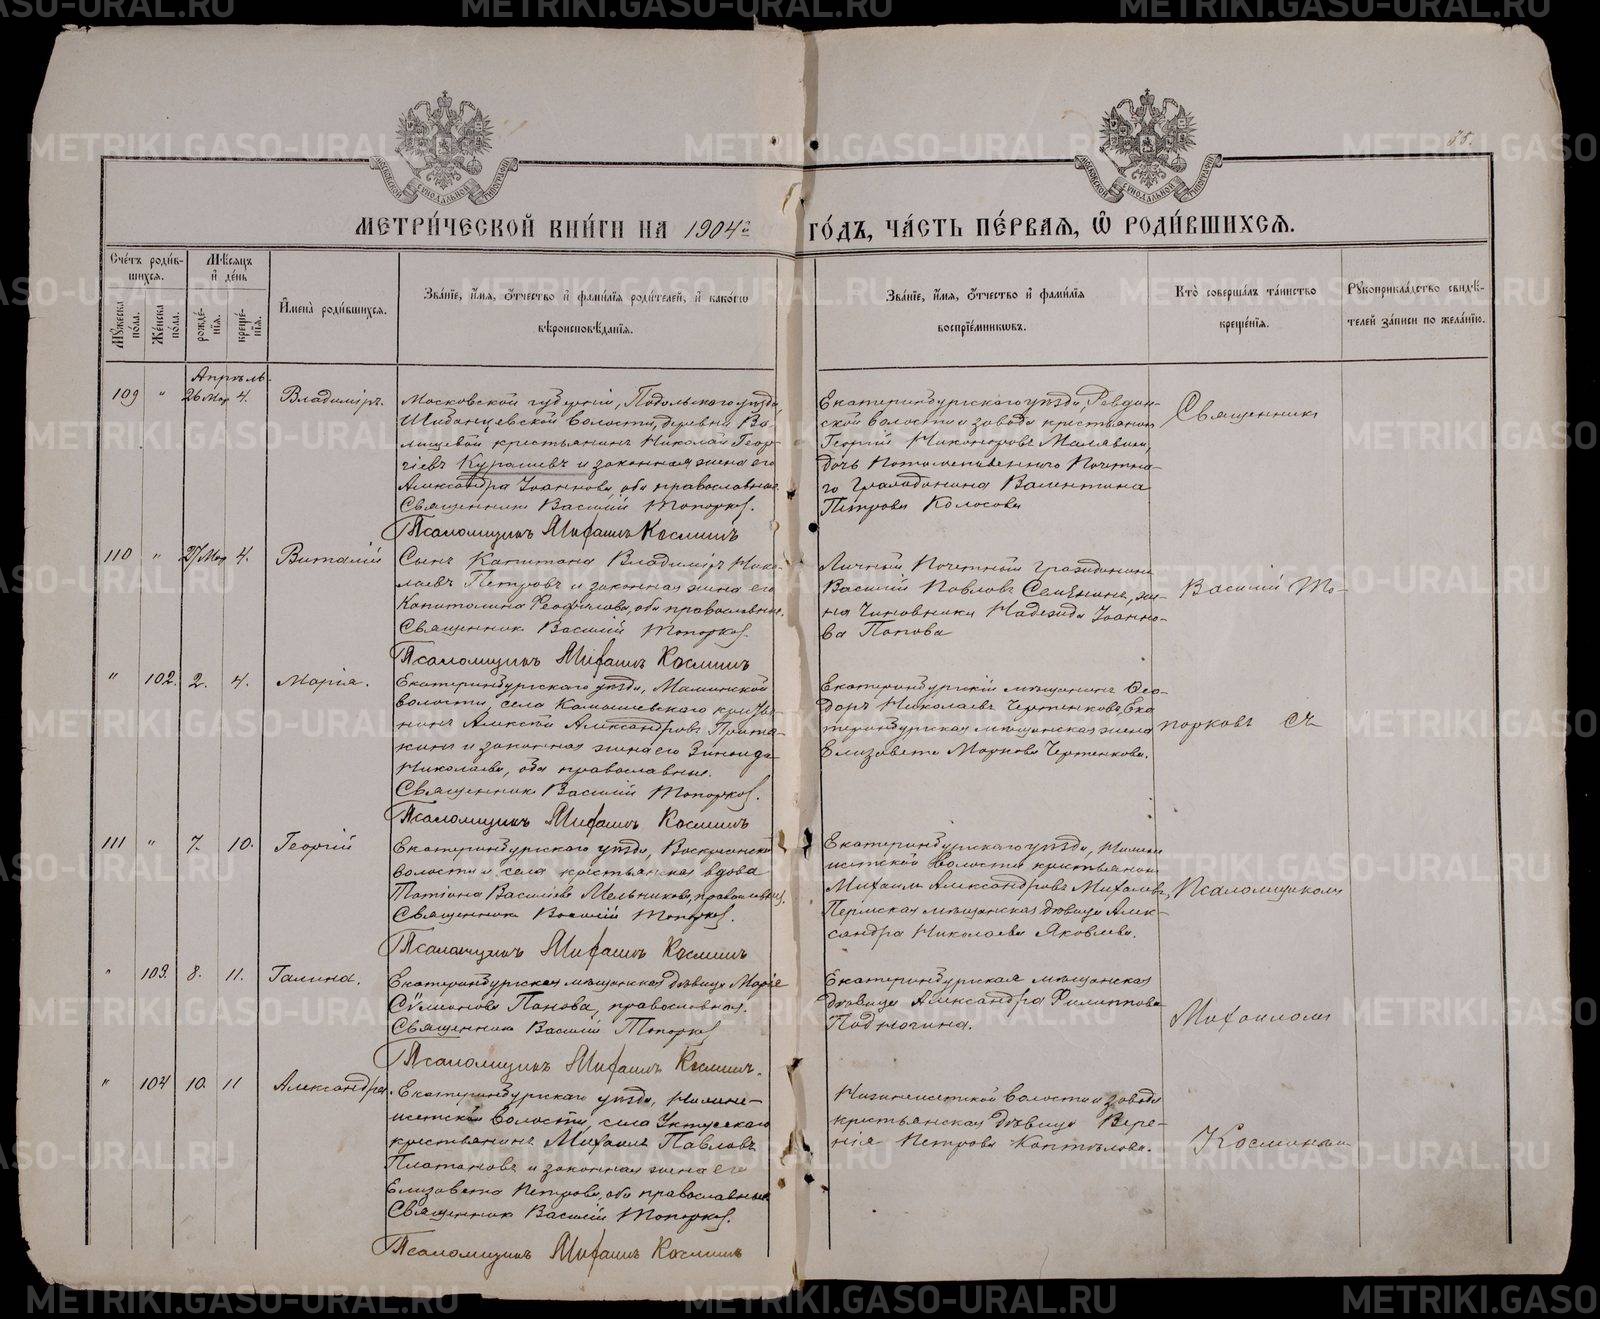 МЕТРИ́ЧЕСКОЙ КНИ́ГИ НА 1904й ГО́ДЪ, ЧА́СТЬ ПЕ́РВАЯ, Ѡ РОДИ́ВШИХСЯ.
35.
Сче́тъ роди́в-
шихся.
Мѣ́сяцъ
и́ де́нь
Мꙋ́жеска по́ла.
Же́нска по́ла.
рожде́-
нїя.
креще́-
нїя.
И҆мена̀ роди́вшихся.
Зва́нїе, и҆́мя, ѻ҆́тчество и҆ фами́лїя роди́телей, и҆ како́гѡ
вѣроисповѣ́данїя.
Зва́нїе, и҆́мя, ѻ҆́тчество и҆ фами́лїя
воспрїе́мниковъ.
Кто̀ соверша́лъ та́инство
креще́нїя.
Рꙋкоприкла́дство свидѣ́-
телей за́писи по жела́нїю.
Апрѣль.
109 " 26 Мар 4. Владиміръ.
Московской губерніи, Подольскаго уѣзда,
волости, деревни Ва-
лищевой крестьянинъ Николай Геор-
гіевъ и законная жена его
Александра Іоаннова, оба православные.
Священникъ Василій Топорков.
Псаломщикъ Михаилъ Косминъ
Екатеринбургскаго уѣзда, Ревдин-
ской волости и завода крестьянинъ
Георгій Никоноровъ Малявинъ,
дочь Потомственнаго Почетна-
го Гражданина Валентина
Петрова Колосова
Священникъ
110 " 27 Мар 4. Виталій
Сынъ Капитана Владиміръ Нико-
лаевъ Петровъ и законная жена его
Капитолина Феофилова, оба православные.
Священникъ Василій Топорков.
Псаломщикъ Михаилъ Косминъ
Личный Почетный гражданинъ
Василій Павловъ жe-
на Чиновника Надежда Іоанно-
ва Попова
Василій То-
" 102. 2. 4. Марія.
Екатеринбургскаго уѣзда, Маминской
волости, села
Алексѣй Александровъ
и законная жена его Зинаида
Николаева, оба православные.
Священникъ Василій Топорков.
Псаломщикъ Михаилъ Косминъ
Екатеринбургскій мѣщанинъ Ѳео-
доръ Николаевъ Чертенковъ, Ека
теринбургская мѣщанская жена
Елизавета Маркова Чертенкова.
порковъ съ
111 " 7. 10. Георгій
Екатеринбургскаго уѣзда,
волости и села крестьянская вдова
Татіана Василіева Мельникова, православная.
Священникъ Василій Топорков.
Псаломщикъ Михаилъ Косминъ
Екатеринбургскаго уѣзда, Нижне
исетской волости крестьянинъ
Михаилъ Александровъ
Пермская мѣщанская дѣвица Алек-
сандра Николаева Яковлева.
Псаломщикомъ
" 103. 8. 11. Галина.
Екатеринбургская мѣщанская дѣвица Марія
Панова, православная.
Священникъ Василій Топорков
Псаломщикъ Михаилъ Косминъ.
Екатеринбургская мѣщанская
дѣвица Александра Филиппова
Михаиломъ
" 104 10. 11 Александра.
Екатеринбургскаго уѣзда, Нижне-
исетской волости, села Уктусскаго
крестьянинъ Михаилъ Павловъ
Платоновъ и законная жена его
Елизавета Петрова, оба православные
Священникъ Василій Топорков.
Псаломщикъ Михаилъ Косминъ
Нижнеисетской волости и завода
крестьянская дѣвица
Петрова Коптѣлова.
Косминымъ
METRIKI.GASO-URAL.RU